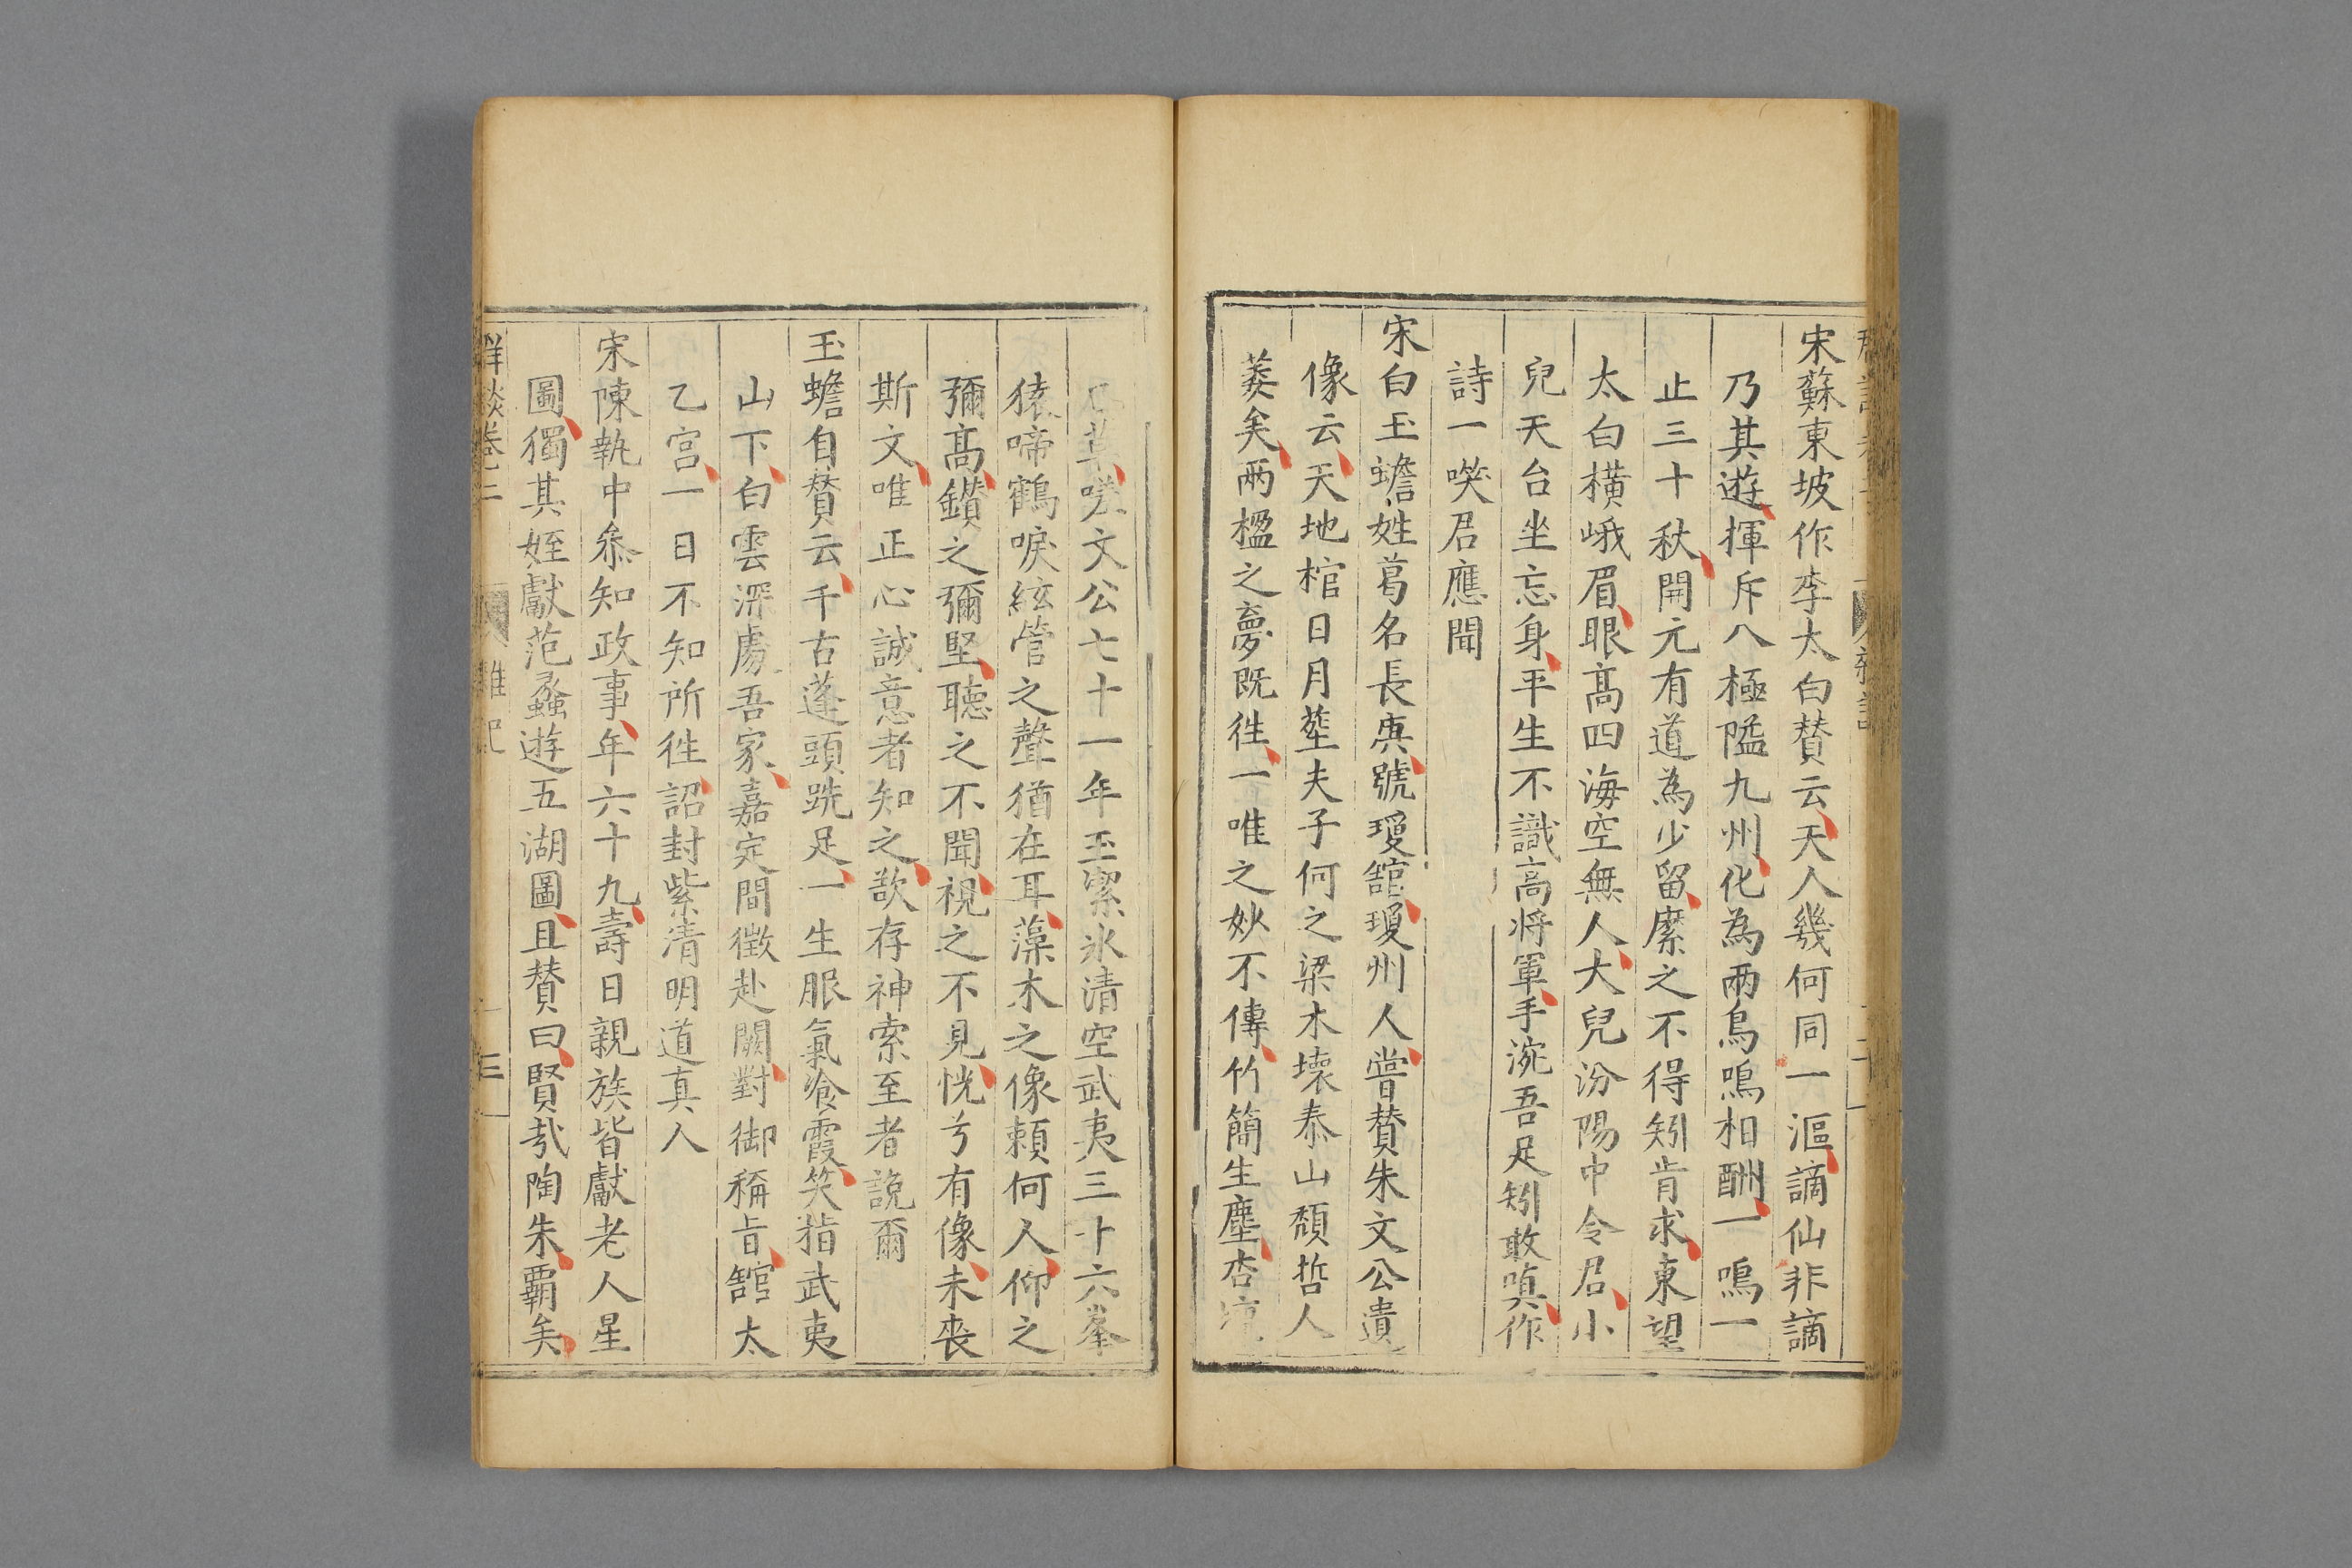 宋蘇東坡作李太白賛云天人幾何同一漚謫仙非謫
乃其遊揮斥八極隘九州化為兩鳥鳴相酬一鳴一
止三十秋開元有道為少留縻之不得矧肯求東望
太白橫峨眉眼髙四海空無人大兒汾陽中令君小
兒天台坐忘身平生不識高將軍手涴吾足矧敢嗔作
詩一㗛君應聞
宋白玉蟾姓葛名長庚號瓊舘瓊州人嘗賛朱文公遺
像云天地棺日月塟夫子何之梁木壊泰山頹哲人
萎矣两楹之夢既徃一唯之妙不傳竹簡生塵杏
草嗟文公七十一年玉潔氷清空武夷三十六峯
猿啼鶴唳絃管之聲猶在耳藻木之像頼何人仰之
彌髙鑚之彌堅聴之不聞視之不見恍兮有像未喪
斯文唯正心誠意者知之欲存神索至者說爾
玉蟾自賛云千古蓬頭跣足一生服氣飡霞笑指武夷
山下白雲深處吾家嘉定間徴赴闕對御稱㫖舘太
乙宫一日不知所徃詔封紫清明道真人
宋陳執中叅知政事年六十九壽日親族皆獻老人星
圖獨其姪獻范蠡遊五湖圖且賛曰賢哉陶朱覇矣
群談卷二
雜記
三